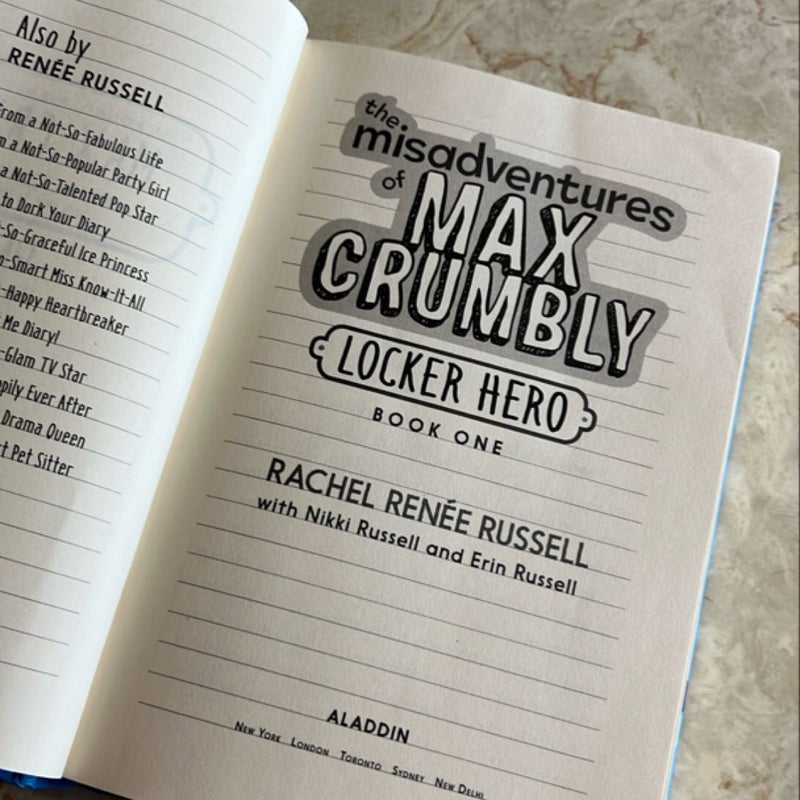 Also by
RENÉE RUSSELL
From a Not-So-Fabulous Life
a Not-So-Popular Party Girl
a Not-So-Talented Pop Star
to Dork Your Diary
-So-Graceful Ice Princess
-Smart Miss Know-It-All
-Happy Heartbreaker
Me Diary!
-Glam TV Star
Ever After
Drama Queen
Pet Sitter
the
misadventures
of
MAX
CRUMBLY
LOCKER HERO
BOOK ONE
RACHEL RENÉE RUSSELL
with Nikki Russell and Erin Russell
ALADDIN
New York London Toronto Sydney New Delhi